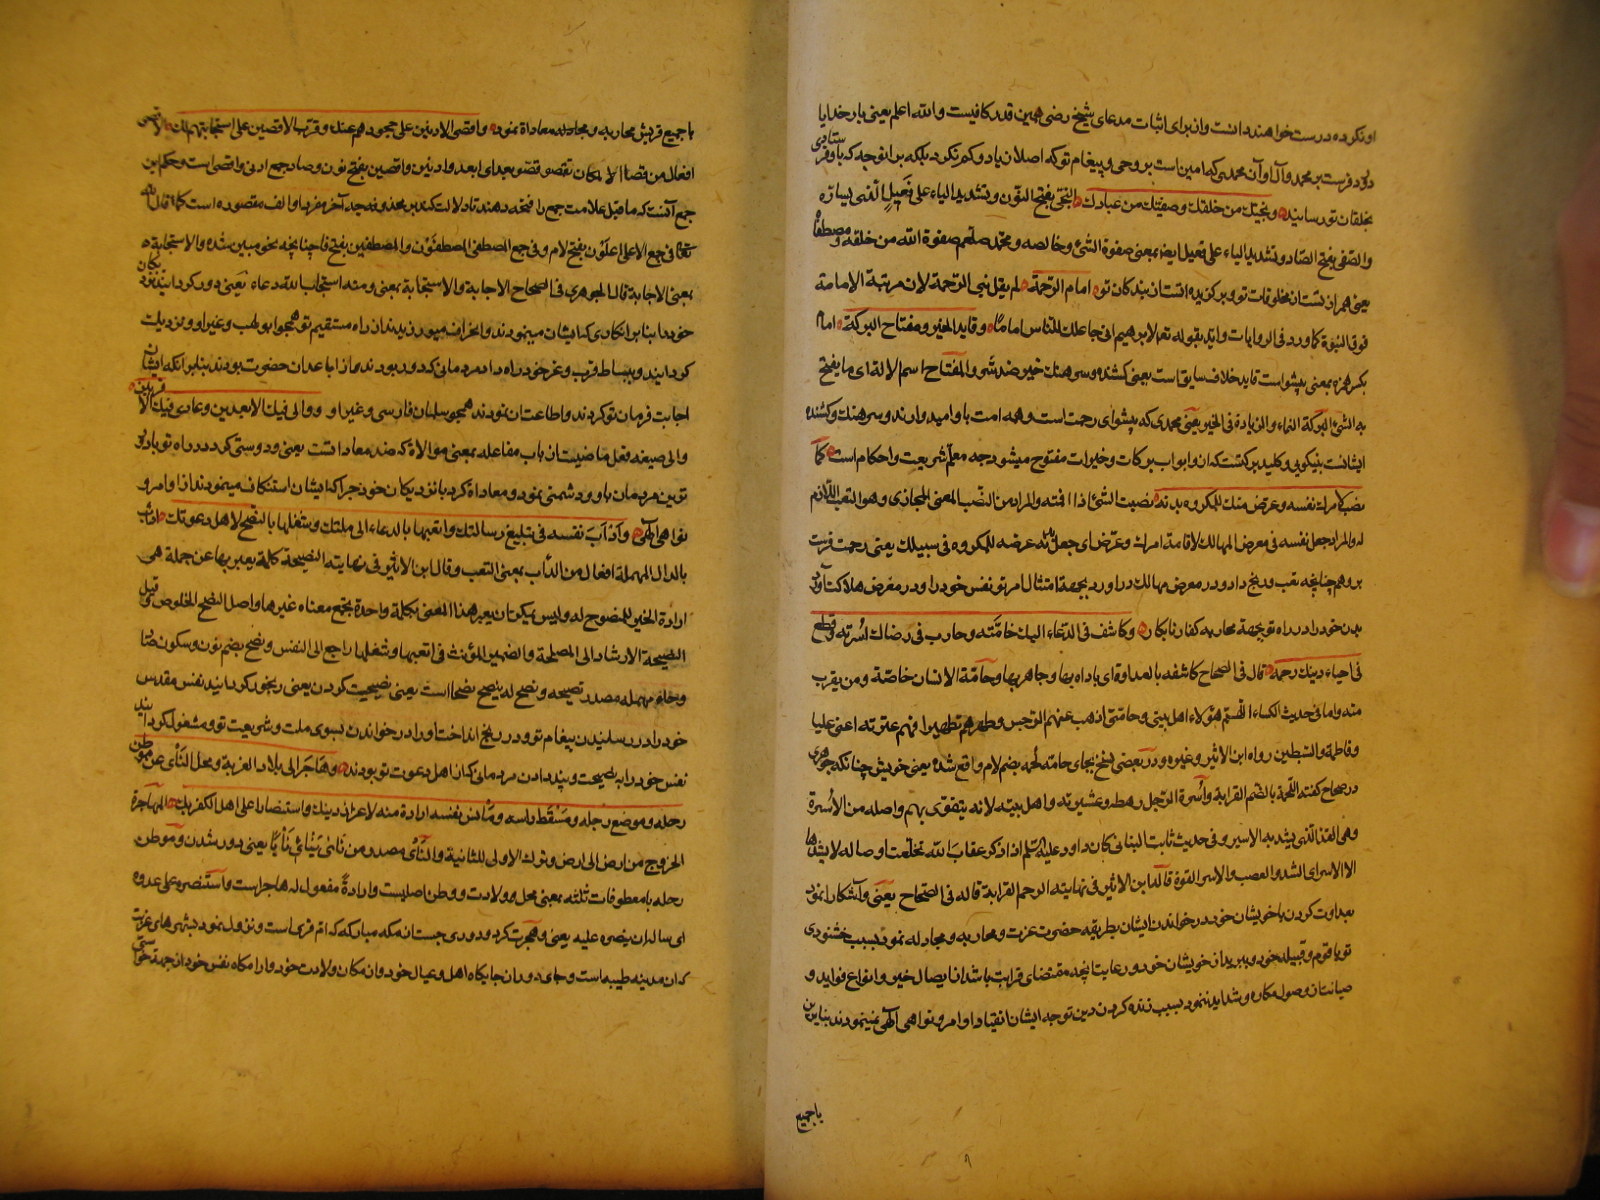 او نکرده درست خواهند دانست و از برای اثبات مدعای شیخ رضی همین قدر کافیست والله اعلم یعنی بار خدایا
درود فرست بر محمد و آل او آن محمدی که امین است بر وحی و پیغام تو که اصلا زیاد و کم نکرد بلکه بر آنوجه که باو فرستادی
بخلقان تو رسانید ونجیبک من خلقک وصفیک من عبادک النجی بفتح النون وتشدید الیاء علی فعیل الذی یساره
والصفی بفتح الصاد وتشدید الیاء علی فعیل ایضا بمعنی صفوة الشیء وخالصه ومحمد صلعم صفوة الله من خلقه ومصطفاه
یعنی همراز تست از مخلوقات تو و برگزیده تست از بندگان تو امام الرحمة لم یقل نبی الرحمة لان مرتبة الامامة
فوق النبوة کما ورد فی الروایات واید بقوله تعالی لابرهیم انی جاعلک للناس اماما وقاید الخیر ومفتاح البرکة امام
بکسر همزه بمعنی پیشواست قاید خلاف سایق است یعنی کشنده و سرهنک خیر ضد شر والمفتاح اسم لالة ای ما یفتح
به الشیء البرکة النماء والزیادة فی الخیر یعنی محمدی که پیشوای رحمت است و همه امت باو امیدوارند و سرهنک و کشنده
ایشانست بنیکویی و کلید برکتست که از او ابواب برکات و خیرات مفتوح میشود چه معلم شریعت و احکام است کما
نصب لامرک نفسه وعرض منک للمکروه بدنه نصبت الشیء اذا اقمته والمراد من النصب المعنی المجازی وهو التعب اللازم
له والمراد جعل نفسه فی معرض المهالک لاقامة امرک وعرض ای جعل بدنه عرضه للمکروه فی سبیلک یعنی رحمت فرست
برو همچنانچه تعب و رنج داد و در معرض مهالک در آورد بجهة امتثال امر تو نفس خود را و در معرض هلاکت آورد
بدن خود را در راه تو بجهة محاربه کفار نابکار وکاشف فی الدعاء الیک حامته وحارب فی رضاک اسرته وقطع
فی احیاء دینک رحمه قال فی الصحاح کاشفه بالعداوة ای باداه بها وجاهر بها وحامة الانسان خاصة ومن یقرب
منه واما فی حدیث الکساء اللهم هؤلاء اهل بیتی وحامتی اذهب عنهم الرجس وطهرهم تطهیرا فهم عترته اعنی علیا
وفاطمة والسبطین رواه ابن الاثیر وغیره و در بعضی نسخ بجای حامته لحمه بضم لام واقع شده یعنی خویش چنانکه جوهری
در صحاح گفته اللحمة بالضم القرابة واسرة الرجل رهطه وعشیرته واهل بیته لانه یتقوی بهم واصله من الاسرة
وهی القد الذی یشد به الاسیر وفی حدیث ثابت البنانی کان داود علیه السلم اذا ذکر عقاب الله تخلعت اوصاله لا یشدها
الا الاسر ای الشد والعصب والاسر القوة قاله ابن الاثیر فی نهایته الرحم القرابة قاله فی الصحاح یعنی و آشکارا نمود
بعداوت کردن با خویشان خود در خواندن ایشان بطریقه حضرت عزت و محاربه و مجادله نمود بسبب خشنودی
تو با قوم و قبیله خود و ببرید از خویشان خود و رعایت آنچه مقتضای قرابت باشد از ایصال خیر و انواع فواید و
صیانت از وصول مکاره و شداید ننمود بسبب زنده کردن دین تو چه ایشان انقیاد اوامر و نواهی آلهی نمینمودند بنابراین
با جمیع
با جمیع قریش محاربه و مجادله معاداة نمود واقصی الادنین علی جحودهم عنک وقرب الاقصین علی استجابتهم لک الاقصی
افعال من قصا المکان یقصو قصوا بعد ای ابعد وادنین واقصین بفتح نون و صاد جمع ادنی و اقصی است و حکم این
جمع آنست که ما قبل علامت جمع را فتحه دهند تا دلالت کند بر محذوف چه آخر مفردها والف مقصوره است کما قال الله
تعالی فی جمع الاعلی اعلون بفتح لام وفی جمع المصطفی المصطفون والمصطفین بفتح فا چنانچه بنحو مبین شده والاستجابة
بمعنی الاجابة قال الجوهری فی الصحاح الاجابة والاستجابة بمعنی ومنه استجاب الله دعاءه یعنی دور گردانید نزدیکان
خود را بنا بر انکاری که ایشان مینمودند و انحراف میورزیدند از راه مستقیم تو همچو ابو لهب و غیر او و نزدیک
گردانید و ببساط قرب و عز خود راه داد مردمانی که دور بودند و از اباعدان حضرت بودند بنابر آنکه ایشان
اجابت فرمان تو کردند و اطاعت آن نمودند همچو سلمان فارسی و غیر او ووالی فیک الابعدین وعادی فیک الاقربین
والی صیغه فعل ماضیست از باب مفاعله بمعنی موالاة که ضد معاداتست یعنی و دوستی کرد در راه تو با دور
ترین مردمان باو و دشمنی نمود و معاداة کرد با نزدیکان خود چرا که ایشان استنکاف مینمودند از اوامر و
نواهی آلهی وادأب نفسه فی تبلیغ رسالتک واتعبها بالدعاء الی ملتک وشغلها بالنصح لاهل دعوتک ادأب
بالدال المهملة افعال من الدأب بمعنی التعب وقال ابن الاثیر فی نهایته النصیحة کلمة یعبر بها عن جملة هی
ارادة الخیر للمنصوح له ولیس یمکن ان یعبر هذا المعنی بکلمة واحدة یجمع معناه غیرها واصل النصح الخلوص وقیل
النصیحة الارشاد الی المصلحة والضمیر المؤنث فی اتعبها وشغلها راجع الی النفس و نصح بضم نون و سکون صاد
وحاء مهمله مصدر نصیحه و نصح له ینصح نصحا است یعنی نصیحت کردن یعنی رنجور گردانید نفس مقدس
خود را در رسانیدن پیغام تو و در رنج انداخت او را در خواندن بسوی ملت و شریعت تو و مشغول گردانید
نفس خود را به نصیحت و پند دادن مردمانی که از اهل دعوت تو بودند وهاجر الی بلاد الغربة ومحل النأی عن موطن
رحله وموضع رجله ومسقط راسه ومأنس نفسه ارادة منه لاعزاز دینک واستنصارا علی اهل الکفر بک المهاجرة
الخروج من ارض الی ارض وترک الاولی للثانیة والنأی مصدر من نأی ینأی نأیا یعنی دور شدن و موطن
رحله با معطوفات ثلثه بمعنی محل و ولادت و وطن اصلیست وارادة مفعول له هاجر است واستنصره علی عدوه
ای ساله ان ینصره علیه یعنی و هجرت کرد و دوری جست از مکه مبارکه که ام قری است و نزول نمود بشهرهای غربت
که آن مدینه طیبه است و جای دور از جایگاه اهل و عیال خود و از مکان ولادت خود و آرامگاه نفس خود از جهة خواستن